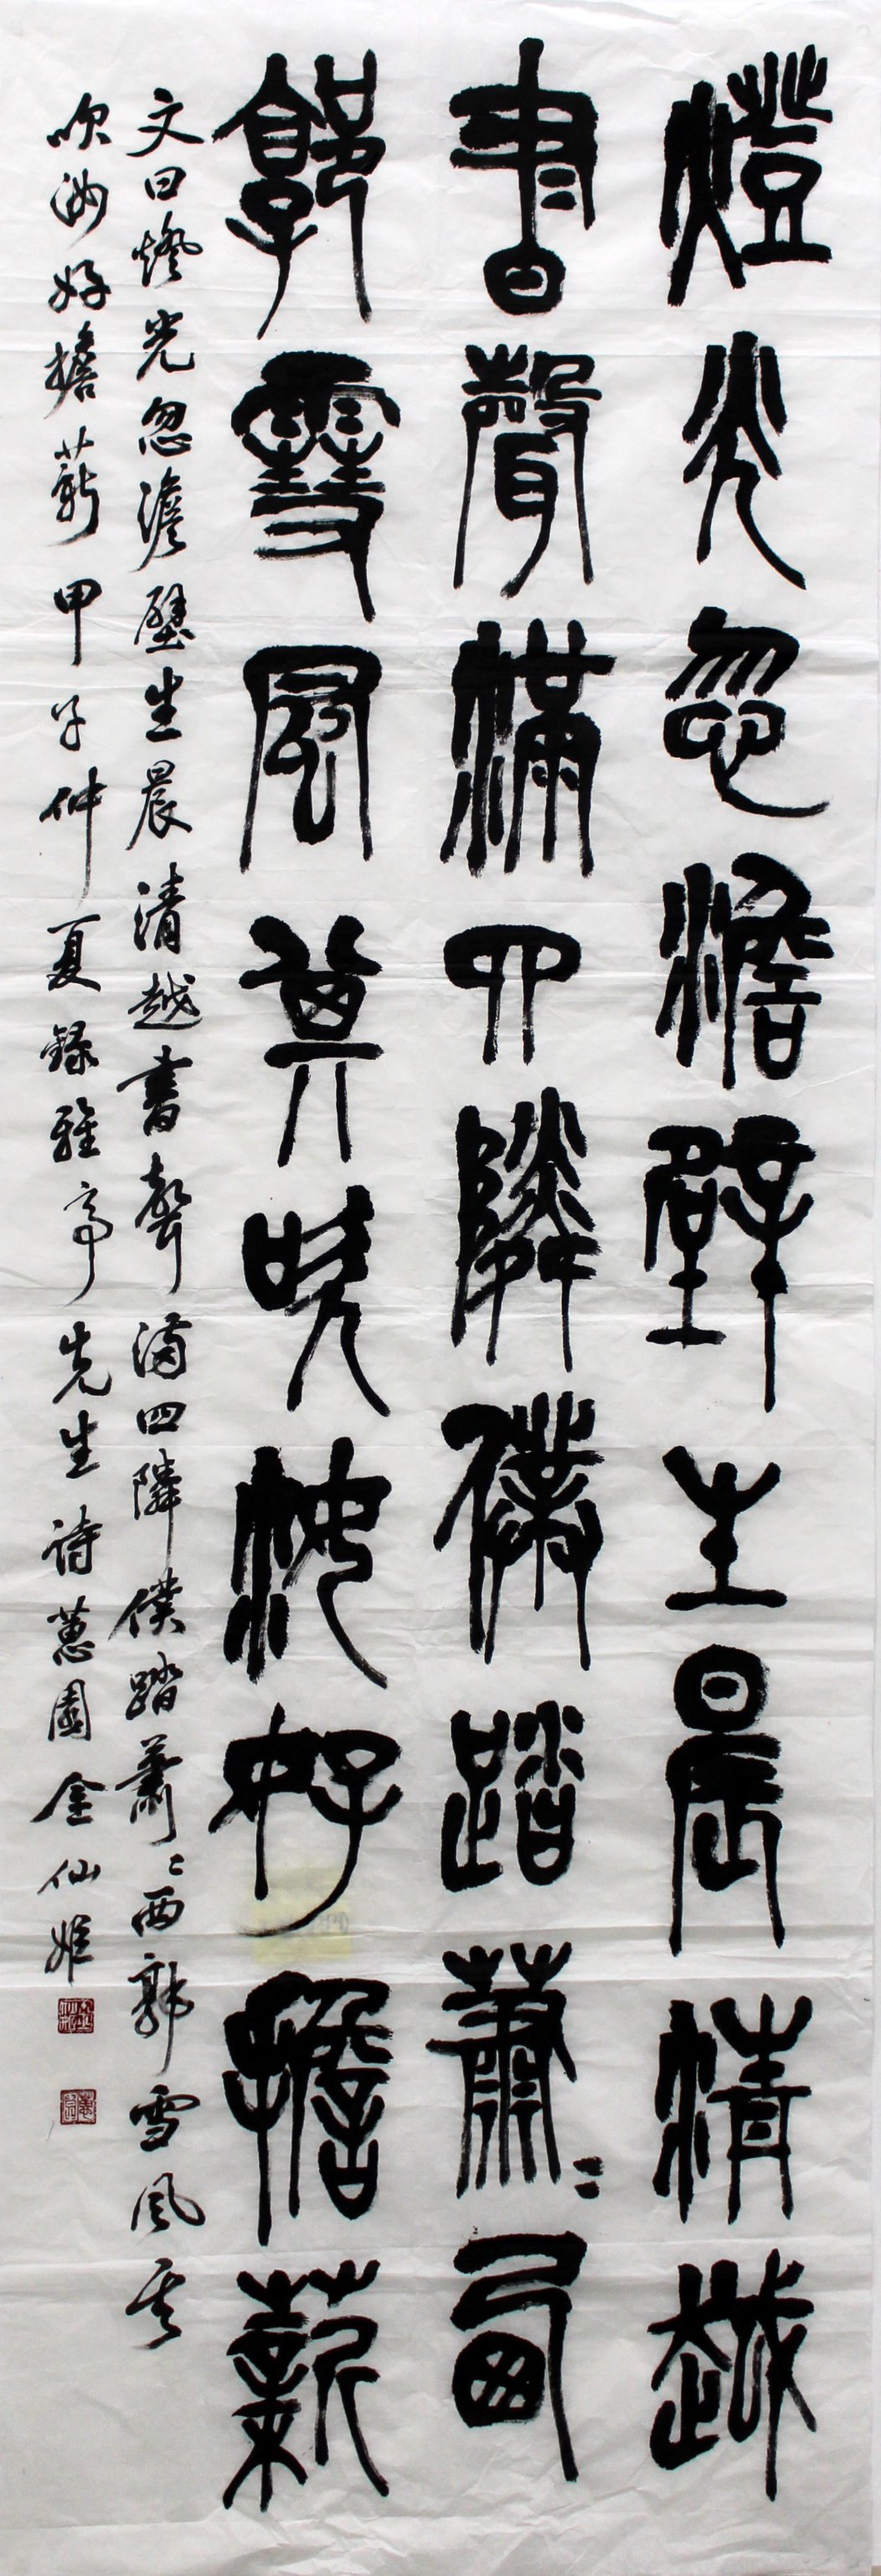 燈光忽澹壁生晨清越
書聲滿四隣僕踏蕭〻西
郭雪風其吹汝好擔薪
文曰燈光忽澹壁生晨清越書聲滿四隣僕踏蕭〻西郭雪風其
吹汝好擔薪 甲子仲夏錄雅亭先生詩蕙園金仙姬